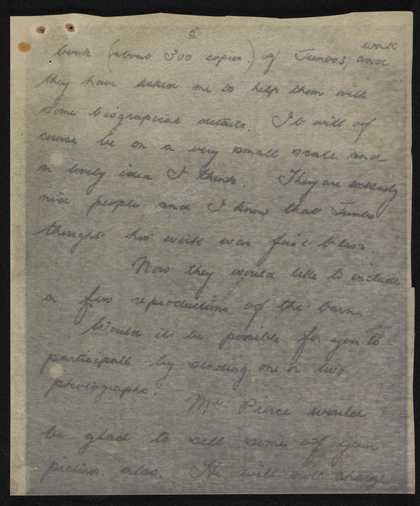 2
work
book (about 300 copies) of Jumbos, and
they have asked me to help them with
some biographical details. It will of
course be on a very small scale and
a lovely idea I think. They are
nice people and I know that Jumbo
thought his work was first class
Now they would like to include
a few reproductions of the barn.
Would it be possible for you to
participate by sending one or two
photographs?
Mr. Pierce would
be glad to sell some of your
pictures also. He will not charge